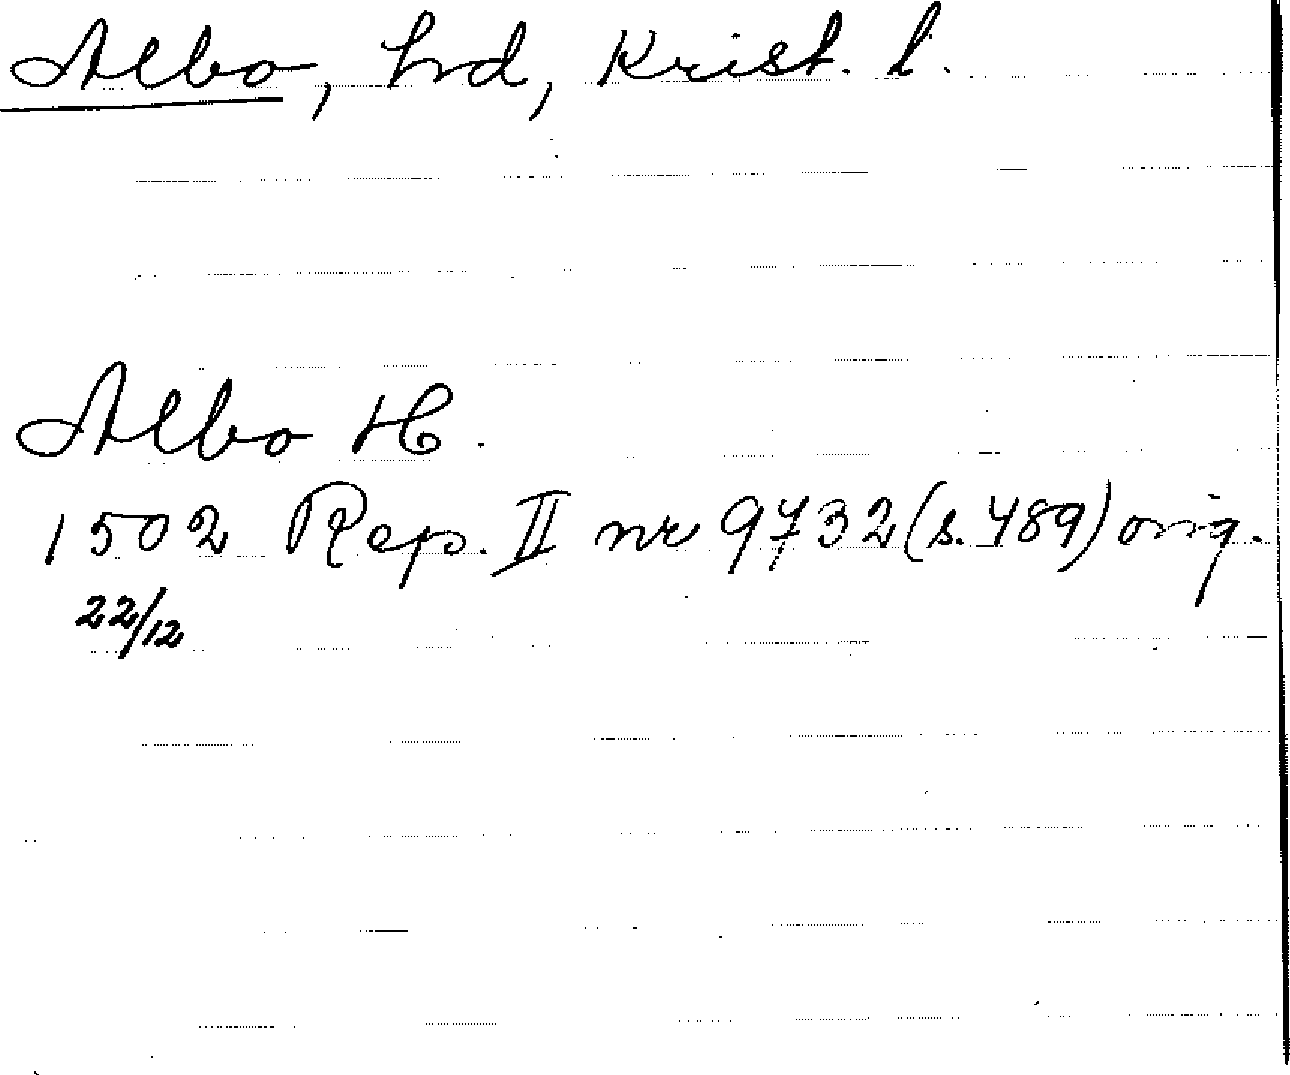 Albo, hrd, Krist. l.
Albo H.
1502 Rep. II nr 9732 (s. 489) orig.
22/12